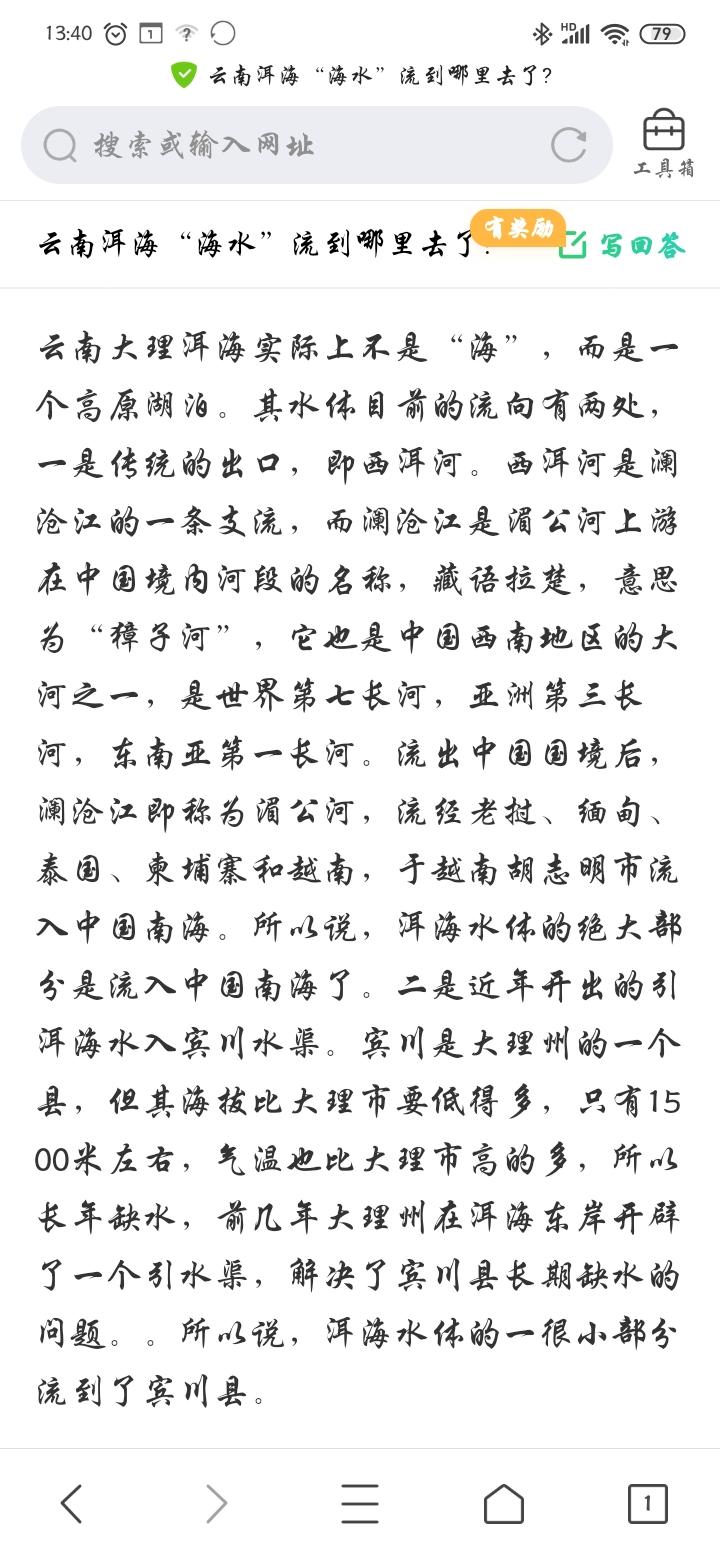 13:40 1 ? HD 79
云南洱海“海水”流到哪里去了?
搜索或输入网址
工具箱
云南洱海“海水”流到哪里去了?
有奖励
写回答
云南大理洱海实际上不是“海”，而是一
个高原湖泊。其水体目前的流向有两处，
一是传统的出口，即西洱河。西洱河是澜
沧江的一条支流，而澜沧江是湄公河上游
在中国境内河段的名称，藏语拉楚，意思
为“獐子河”，它也是中国西南地区的大
河之一，是世界第七长河，亚洲第三长
河，东南亚第一长河。流出中国国境后，
澜沧江即称为湄公河，流经老挝、缅甸、
泰国、柬埔寨和越南，于越南胡志明市流
入中国南海。所以说，洱海水体的绝大部
分是流入中国南海了。二是近年开出的引
洱海水入宾川水渠。宾川是大理州的一个
县，但其海拔比大理市要低得多，只有15
00米左右，气温也比大理市高的多，所以
长年缺水，前几年大理州在洱海东岸开辟
了一个引水渠，解决了宾川县长期缺水的
问题。。所以说，洱海水体的一很小部分
流到了宾川县。
1